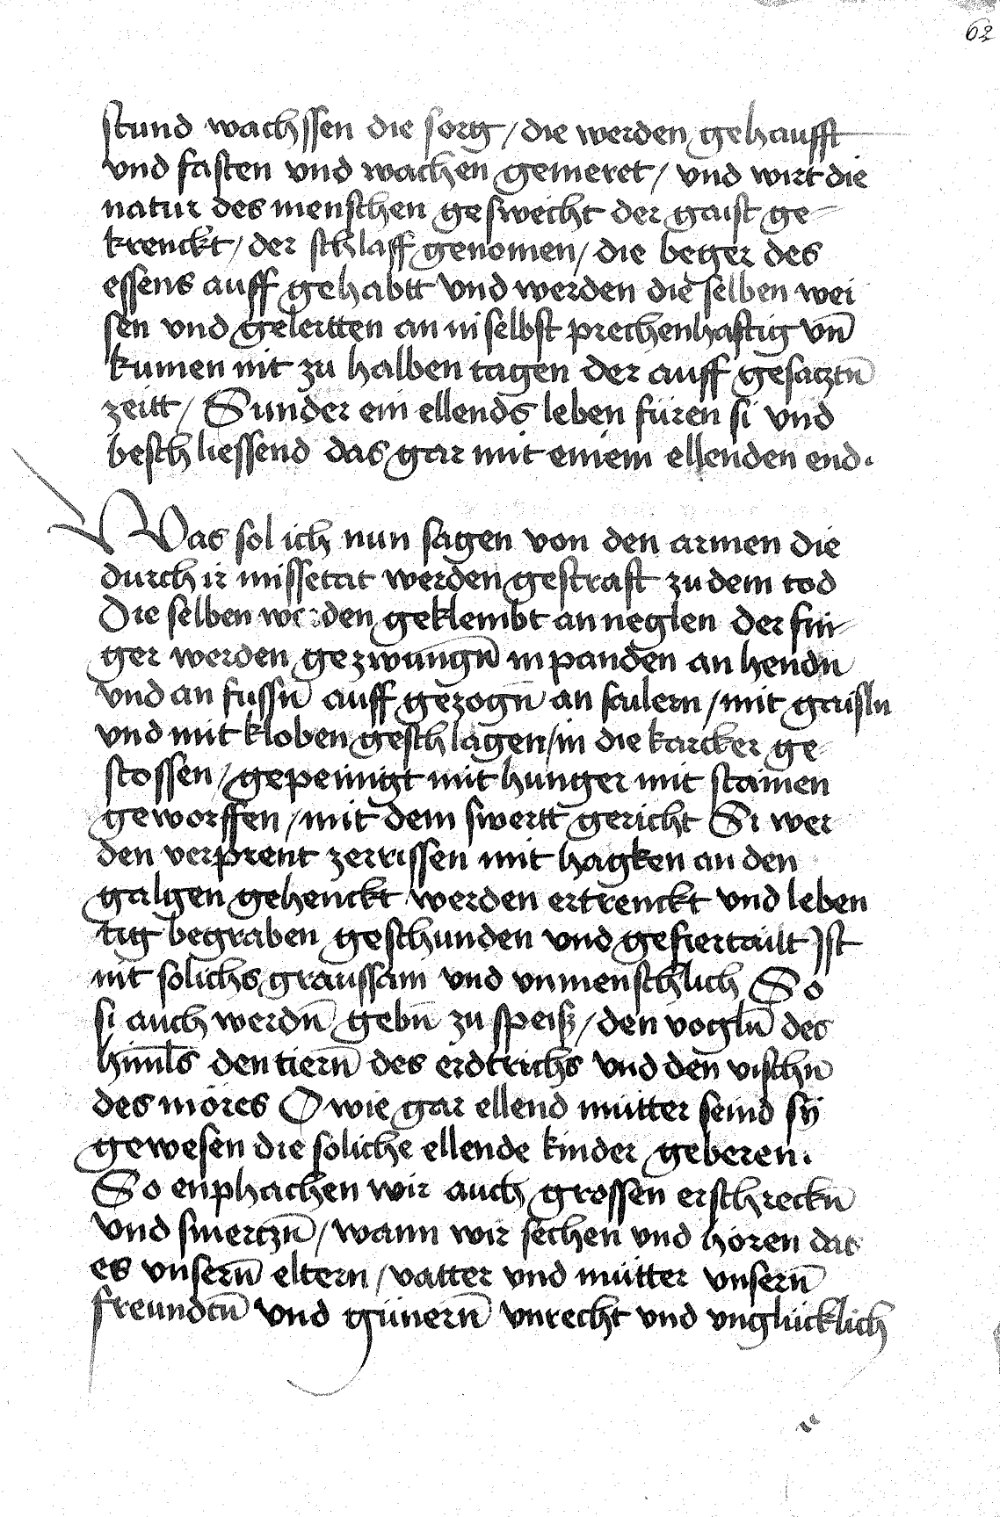 62
stund wachssen die sorg / die werden gehaufft
vnd fasten vnd wachen gemeret / vnd wirt die
natur des menschen geswecht der gaist ge-
krenckt / der schlaff genomen / die beger des
essens auff gehabtt vnd werden die selben wei
sen vnd gelertten an in selbst prechenhafftig vn̄
kumen nit zu halben tagen der auff gesatztn̄
zeitt / Sunder ein ellends leben füren si vnd
beschliessend das gar mit einem ellenden end.
Was sol ich nun sagen von den armen die
durch ir missetat werden gestraft zu dem tod
Die selben werden geklembt an neglen der fin-
ger werden gezwungn̄ in panden an hendn̄
vnd an fussn̄ auff gezogn̄ an saulern / mit gaisln
vnd mit kloben geschlagen / in die karcker ge-
stossen / gepeinigt mit hunger mit stainen
geworffen / mit dem swertt gericht Si wer
den verprent zerrissen mit hagken an den
galgen gehenckt werden ertrenckt vnd leben
tig begraben geschunden vnd gefiertailt Ist
nit solichs graussam vnd vnmenschlich So
si auch werdn̄ gebn̄ zu speiß / den vogln̄ des
himls den tiern̄ des erdtrichs vnd den vischn̄
des möres O wie gar ellend mütter seind sy
gewesen die soliche ellende kinder geberen.
So enphachen wir auch grossen erschreckn̄
vnd smertzn̄ / wann wir sechen vnd hören das
es vnsern̄ eltern / vatter vnd mütter vnsern̄
freundtn̄ vnd günern̄ vnrecht vnd vnglücklich